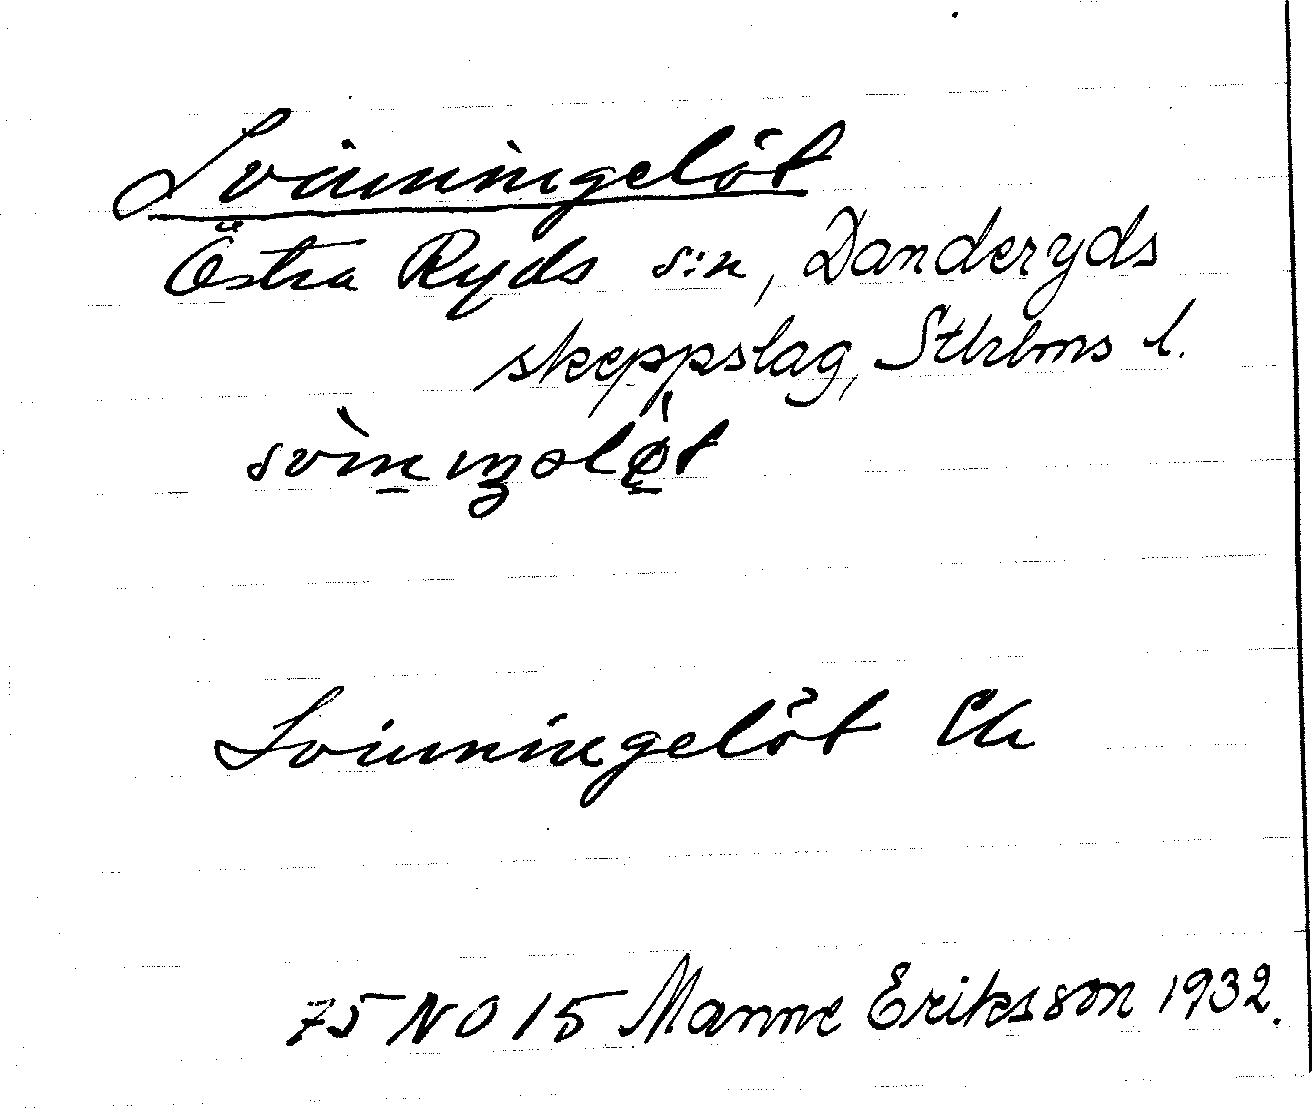 Svinningelöt
Östra Ryds s:n, Danderyds
skeppslag, Sthlms l.
Svinningelöt Ek
75 NO 15 Manne Eriksson 1932.